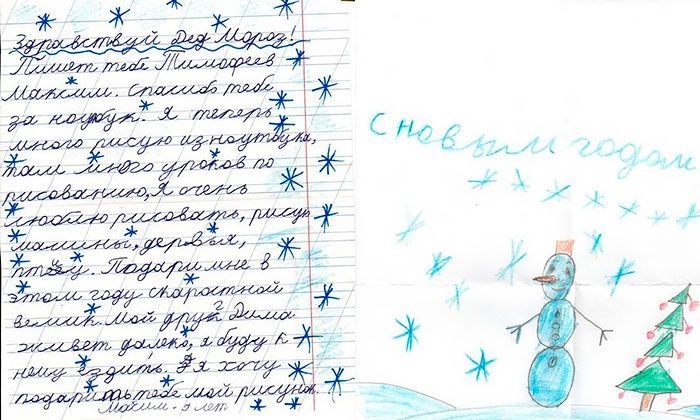 Здравствуй Дед Мороз!
Пишет тебе Тимофеев
Максим. Спасибо тебе
за ноубук. Я теперь
много рисую из ноутбука,
там много уроков по
рисованию, я очень
люблю рисовать, рисую
машины, деревья,
Подари мне в
этом году скаростной
велик. Мой друг Дима
живет далеко, я буду к
нему ездить. Я хочу
подарить тебе мой рисунок.
Максим - 9 лет
С новым годом